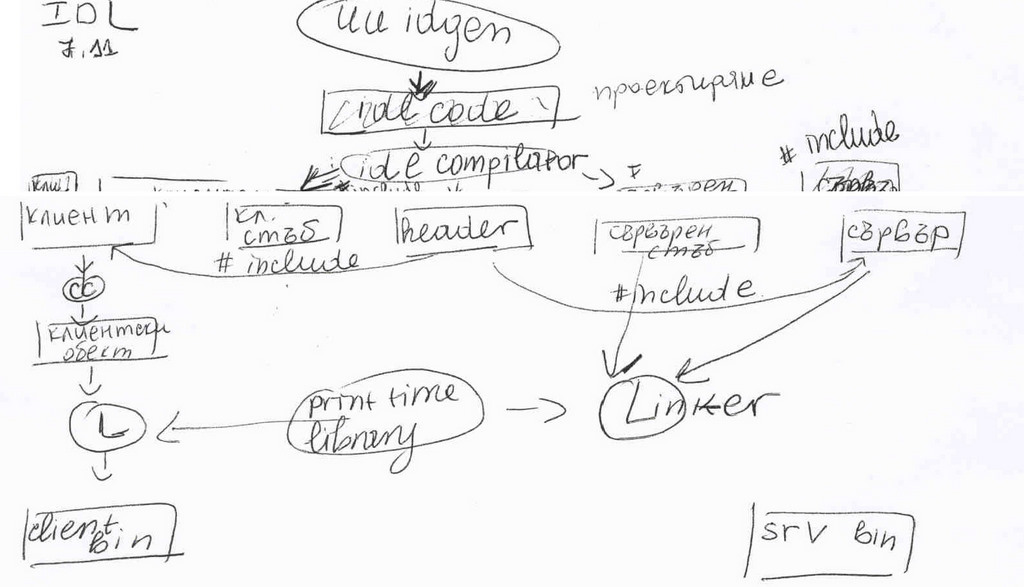 IDL
7.11
uuidgen
idl code
проектиране
idl compilator
# include
клиент
кл.
стъб
header
сървърен
стъб
сървър
# include
#include
cc
клиентски
обект
print time
library
L
Linker
client
bin
srv bin